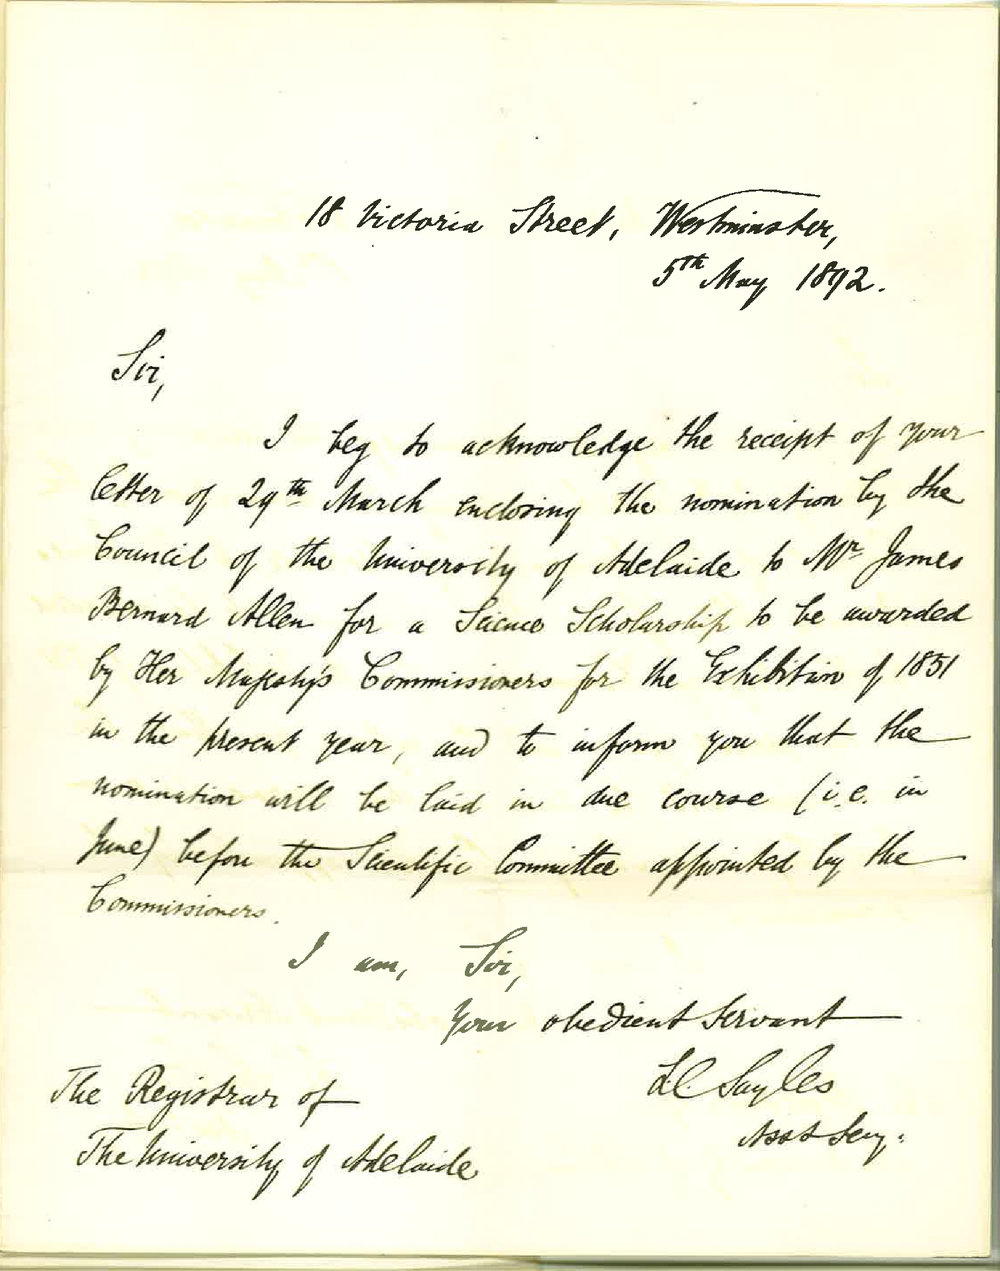 18 Victoria Street, Westminster,
5th May 1892.
Sir,
I beg to acknowledge the receipt of your
letter of 29th March enclosing the nomination by the
Council of the University of Adelaide to Mr James
Bernard Allen for a Science Scholarship to be awarded
by Her Majesty's Commissioners for the Exhibition of 1851
in the present year, and to inform you that the
nomination will be laid in due course (i.e. in
June) before the Scientific Committee appointed by the
Commissioners.
I am, Sir,
Your obedient Servant
L.C. Sayles
Asst Secy.
The Registrar of
The University of Adelaide